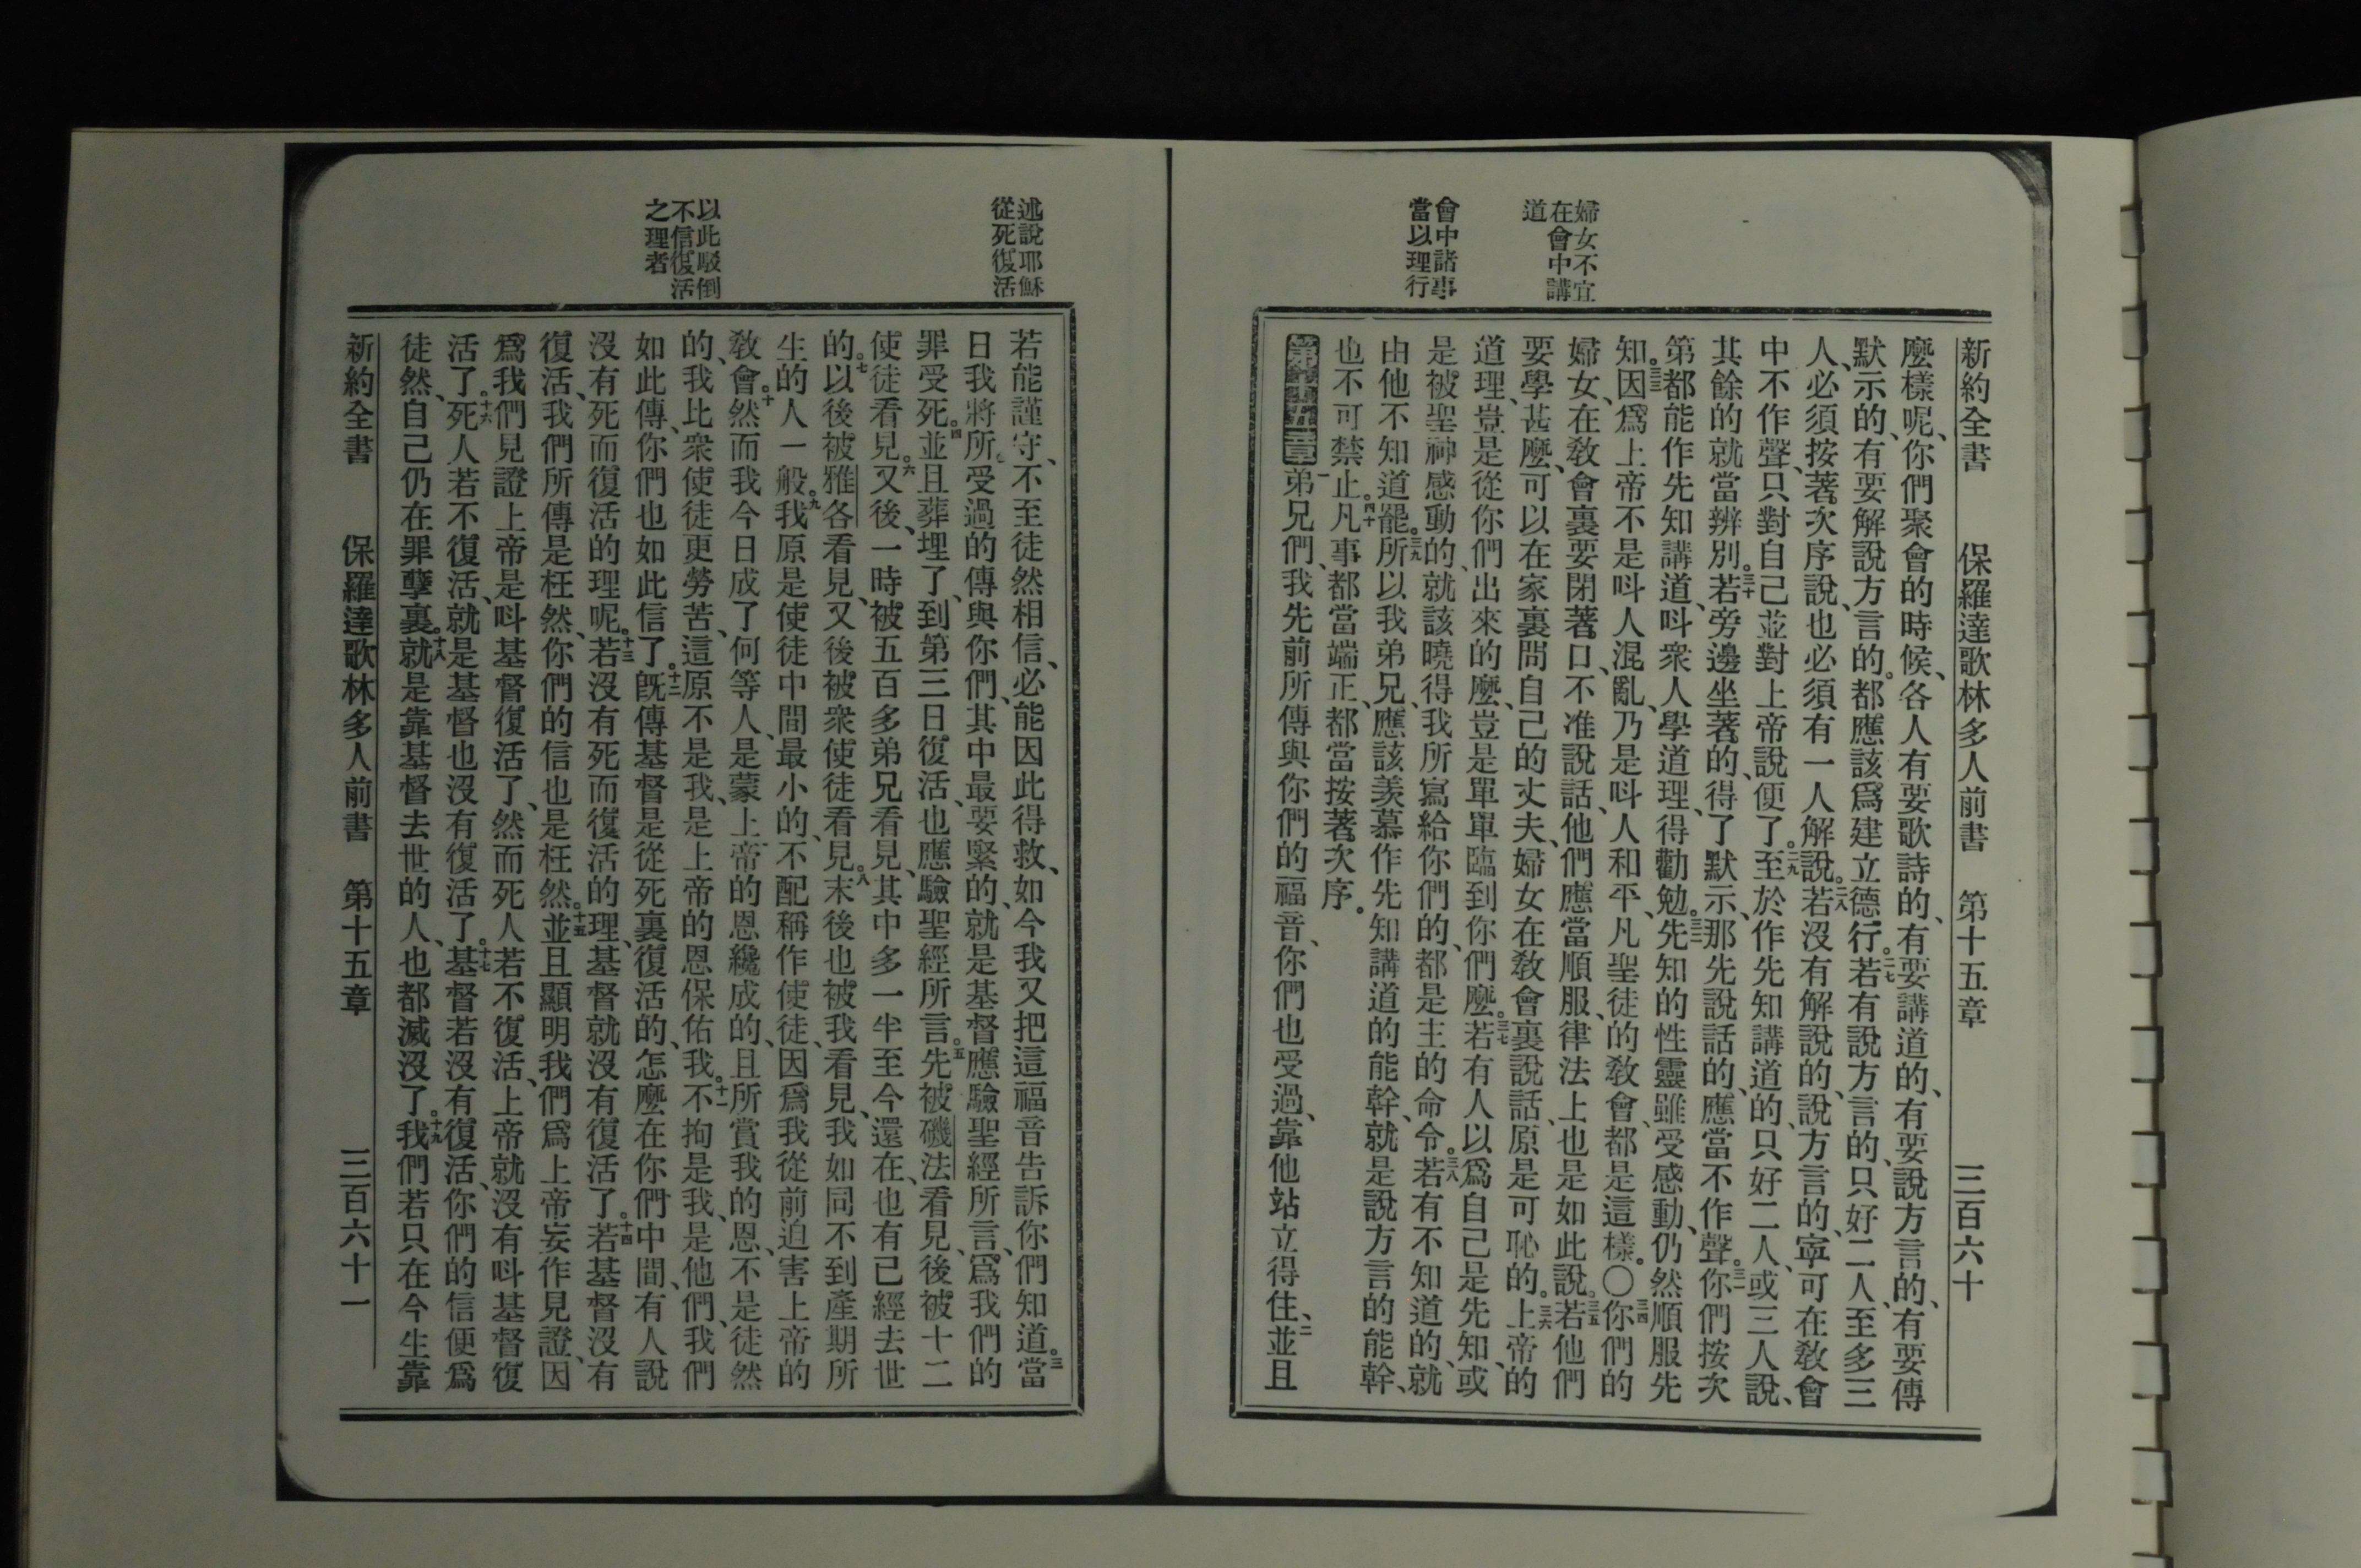 新約全書 保羅達歌林多人前書 第十五章 三百六十
婦女不宜
在會中講
道
會中諸事
當以理行
麼樣呢、你們聚會的時候、各人有要歌詩的、有要講道的、有要說方言的、有要傳
默示的、有要解說方言的。都應該爲建立德行。二七若有說方言的、只好二人、至多三
人、必須按著次序說、也必須有一人解說。二八若沒有解說的、說方言的、寧可在敎會
中不作聲、只對自己並對上帝說便了。二九至於作先知講道的、只好二人、或三人說、
其餘的就當辨別。三十若旁邊坐著的、得了默示、那先說話的、應當不作聲。三一你們按次
第都能作先知講道、呌衆人學道理、得勸勉。三二先知的性靈雖受感動、仍然順服先
知。三三因爲上帝不是呌人混亂、乃是呌人和平、凡聖徒的敎會、都是這樣。〇三四你們的
婦女、在敎會裏要閉著口、不准說話、他們應當順服、律法上也是如此說。三五若他們
要學甚麼、可以在家裏問自己的丈夫、婦女在敎會裏說話、原是可恥的。三六上帝的
道理、豈是從你們出來的麼、豈是單單臨到你們麼。三七若有人以爲自己是先知、或
是被聖神感動的、就該曉得、我所寫給你們的、都是主的命令。三八若有不知道的、就
由他不知道罷。三九所以我弟兄、應該羡慕作先知講道的能幹、就是說方言的能幹、
也不可禁止。四十凡事都當端正、都當按著次序。
第十五章一弟兄們、我先前所傳與你們的福音、你們也受過、靠他站立得住、二並且
述說耶穌
從死復活
以此駁倒
不信復活
之理者
若能謹守、不至徒然相信、必能因此得救、如今我又把這福音告訴你們知道。三當
日我將所受過的傳與你們、其中最要緊的、就是基督應驗聖經所言、爲我們的
罪受死。四並且葬埋了、到第三日復活、也應驗聖經所言。五先被磯法看見、後被十二
使徒看見。六又後、一時被五百多弟兄看見、其中多一半至今還在、也有已經去世
的。七以後被雅各看見、又後被衆使徒看見。八末後也被我看見、我如同不到產期所
生的人一般。九我原是使徒中間最小的、不配稱作使徒、因爲我從前迫害上帝的
敎會。十然而我今日成了何等人、是蒙上帝的恩纔成的、且所賞我的恩、不是徒然
的、我比衆使徒更勞苦、這原不是我、是上帝的恩保佑我。十一不拘是我、是他們、我們
如此傳、你們也如此信了。十二旣傳基督是從死裏復活的、怎麼在你們中間、有人說
沒有死而復活的理呢。十三若沒有死而復活的理、基督就沒有復活了。十四若基督沒有
復活、我們所傳是枉然、你們的信也是枉然。十五並且顯明我們爲上帝妄作見證、因
爲我們見證上帝是呌基督復活了、然而死人若不復活、上帝就沒有呌基督復
活了。十六死人若不復活、就是基督也沒有復活了。十七基督若沒有復活、你們的信便爲
徒然、自己仍在罪孽裏。十八就是靠基督去世的人、也都滅沒了。十九我們若只在今生靠
新約全書 保羅達歌林多人前書 第十五章 三百六十一